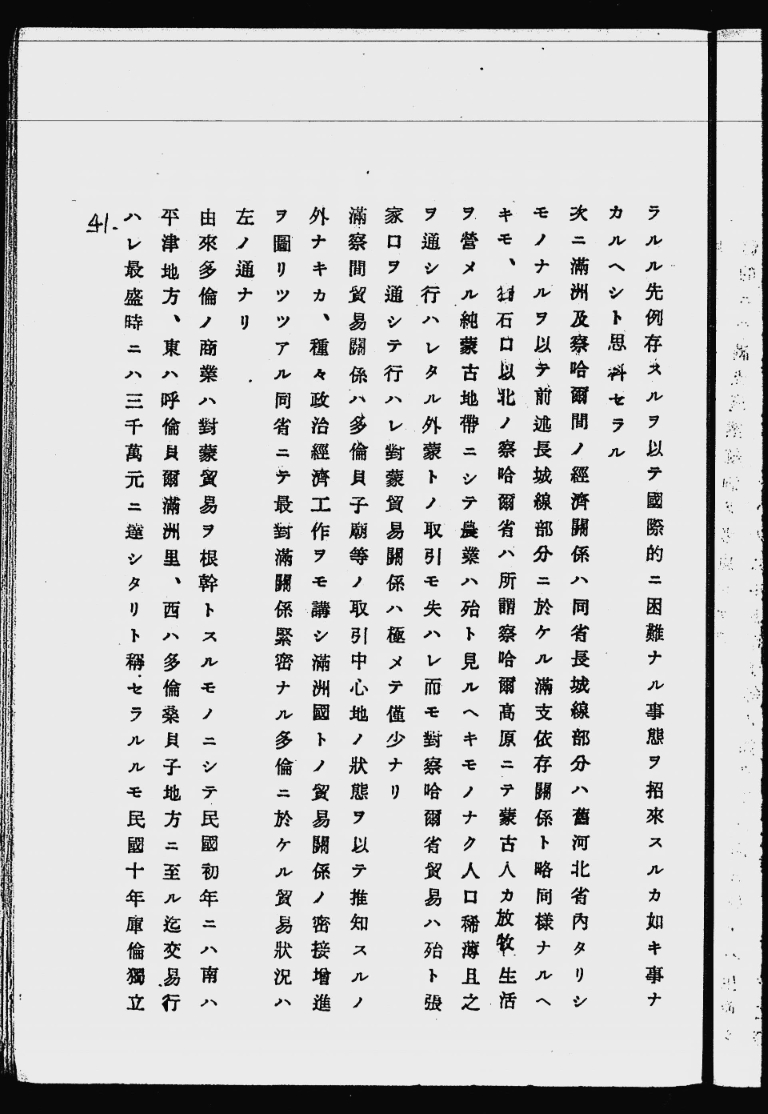 ラルル先例存スルヲ以テ國際的ニ困難ナル事態ヲ招來スルカ如キ事ナ
カルヘシト思料セラル
次ニ滿洲及察哈爾間ノ經濟關係ハ同省長城線部分ハ舊河北省內タリシ
モノナルヲ以テ前述長城線部分ニ於ケル滿支依存關係ト略同樣ナルヘ
キモ、石口以北ノ察哈爾省ハ所謂察哈爾高原ニテ蒙古人カ放牧生活
ヲ營メル純蒙古地帶ニシテ農業ハ殆ト見ルヘキモノナク人口稀薄且之
ヲ通シ行ハレタル外蒙トノ取引モ失ハレ而モ對察哈爾省貿易ハ殆ト張
家口ヲ通シテ行ハレ對蒙貿易關係ハ極メテ僅少ナリ
滿察間貿易關係ハ多倫貝子廟等ノ取引中心地ノ狀態ヲ以テ推知スルノ
外ナキカ、種々政治經濟工作ヲモ講シ滿洲國トノ貿易關係ノ密接增進
ヲ圖リツツアル同省ニテ最對滿關係緊密ナル多倫ニ於ケル貿易狀況ハ
左ノ通ナリ
由來多倫ノ商業ハ對蒙貿易ヲ根幹トスルモノニシテ民國初年ニハ南ハ
平津地方、東ハ呼倫貝爾滿洲里、西ハ多倫桑貝子地方ニ至ル迄交易行
ハレ最盛時ニハ三千萬元ニ達シタリト稱セラルルモ民國十年庫倫獨立
41.